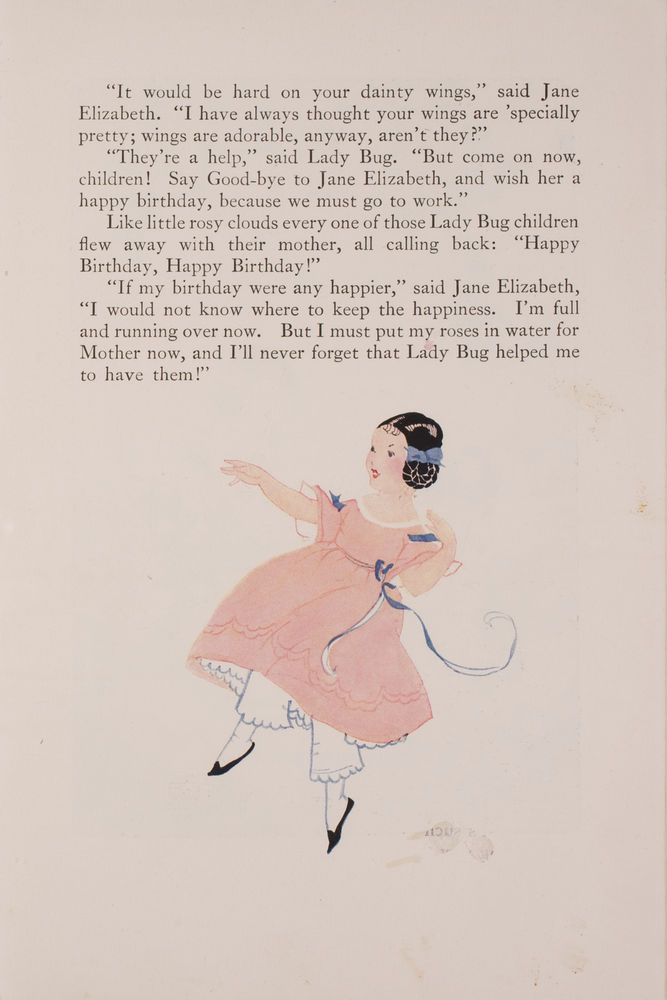 “It would be hard on your dainty wings,” said Jane
Elizabeth. “I have always thought your wings are ’specially
pretty; wings are adorable, anyway, aren’t they?”
“They’re a help,” said Lady Bug. “But come on now,
children! Say Good-bye to Jane Elizabeth, and wish her a
happy birthday, because we must go to work.”
Like little rosy clouds every one of those Lady Bug children
flew away with their mother, all calling back: “Happy
Birthday, Happy Birthday!”
“If my birthday were any happier,” said Jane Elizabeth,
“I would not know where to keep the happiness. I’m full
and running over now. But I must put my roses in water for
Mother now, and I’ll never forget that Lady Bug helped me
to have them!”